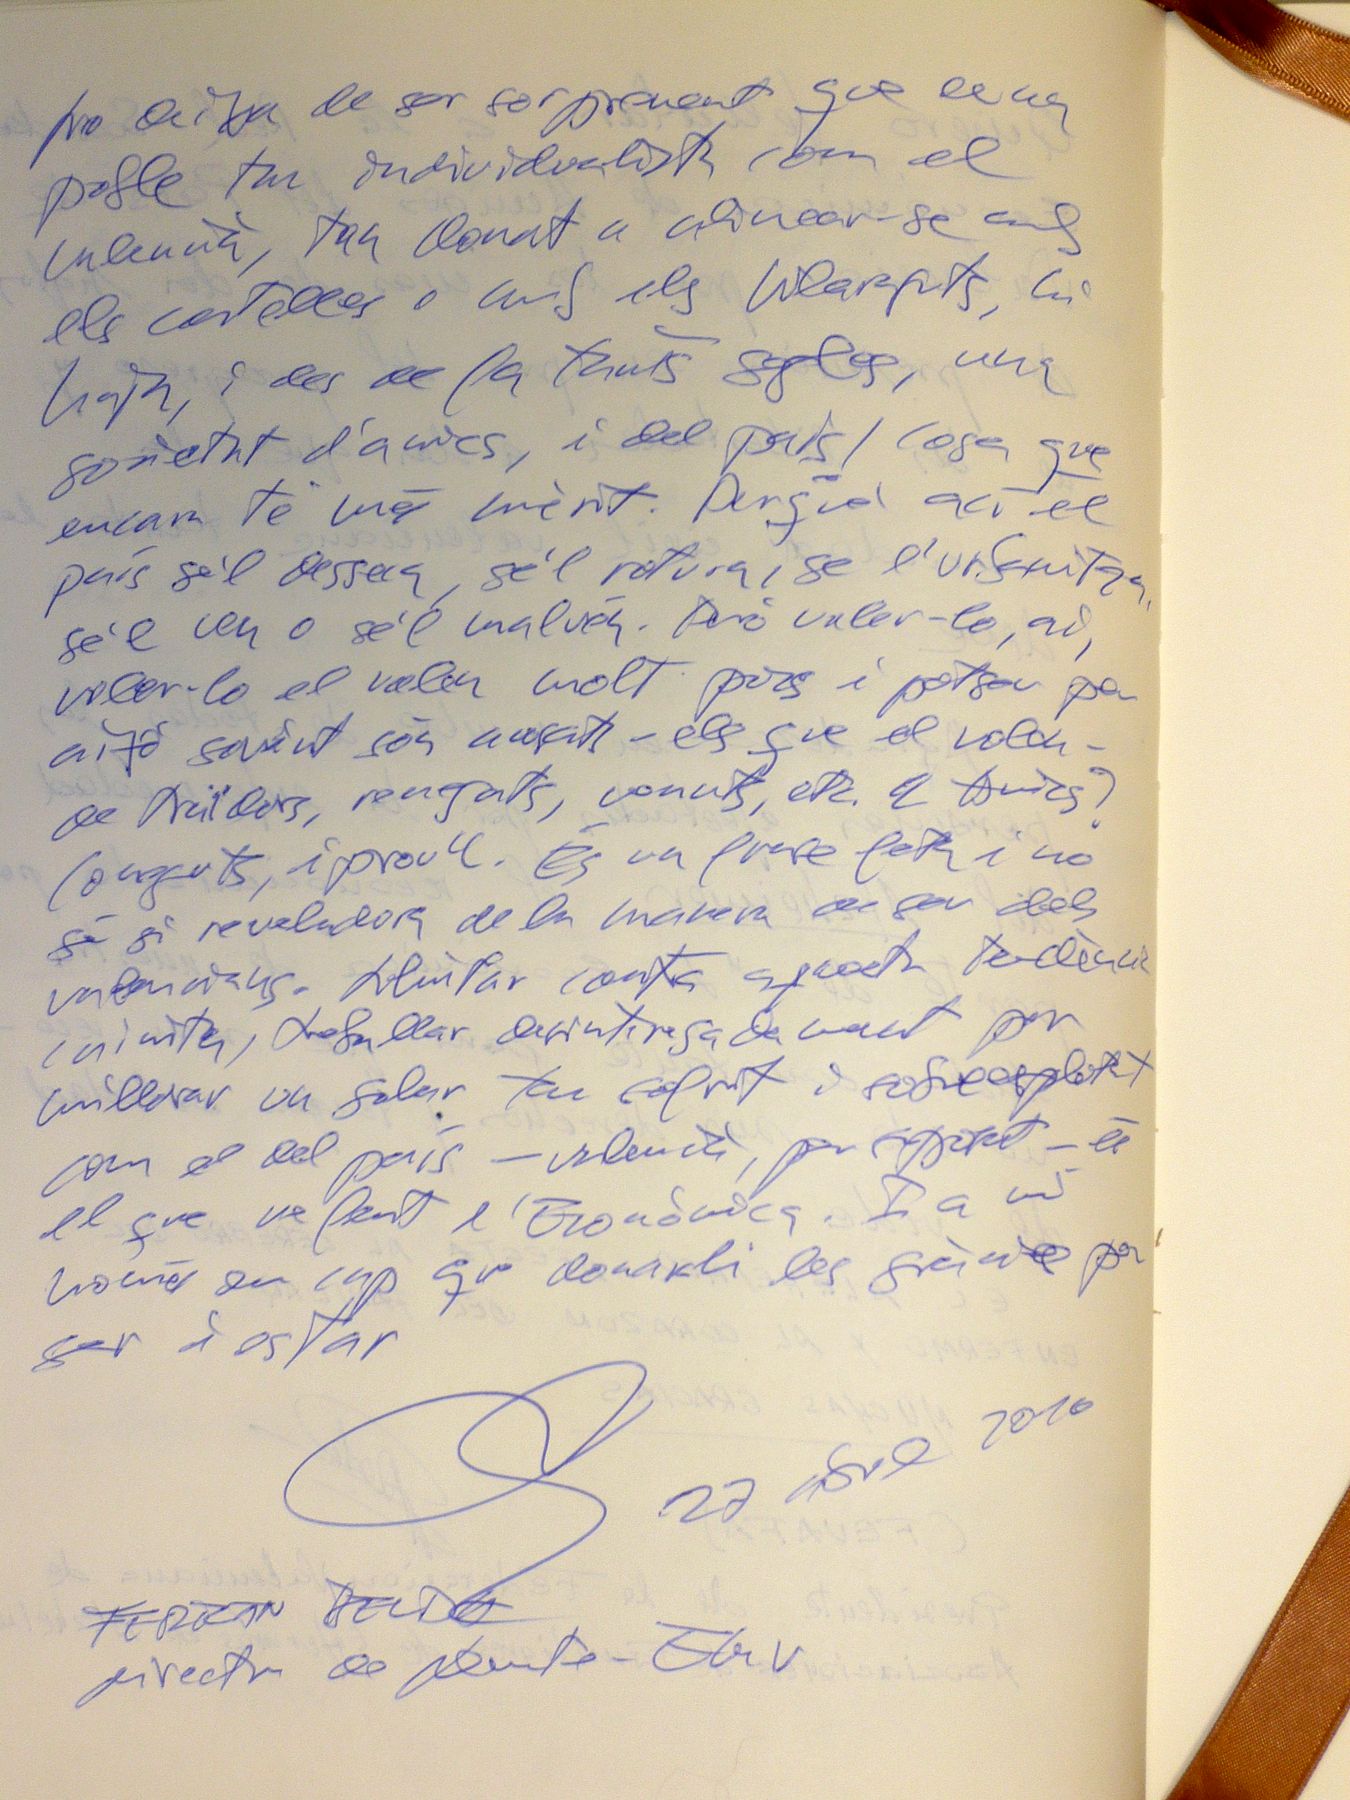 no deixa de ser sorprenent que en un
poble tan individualista com el
valencià, tan donat a alinear-se amb
els centelles o amb els Vilaraguts, hi
haja, i des de fa tants segles, una
societat d'amics, i del país/ cosa que
encara té més mèrit. Perquè ací el
país se'l desseca, se'l rotura, se l'urbanitza,
se'l ven o se'l malvén. Però voler-lo, ai,
voler-lo el volem molt pocs i potser per
això sovint som acusats – els que el volem –
de traïdors, renegats, venuts, etc. q Amics?
Congents, i prou". És una frase feta i no
sé si reveladora de la manera de ser dels
valencians. Lluitar contra aquesta tendència
cainita, treballar desinteresadament per
millorar un solar tan cofrit i sobreexplotat
com el del país – valencià, per suposat – és
el que ve fent l'Econòmica. I a mi
només em cap que donarli les gràcies per
ser i estar
27 abril 2010
FERRAN BELDA
director de Levante-EMV